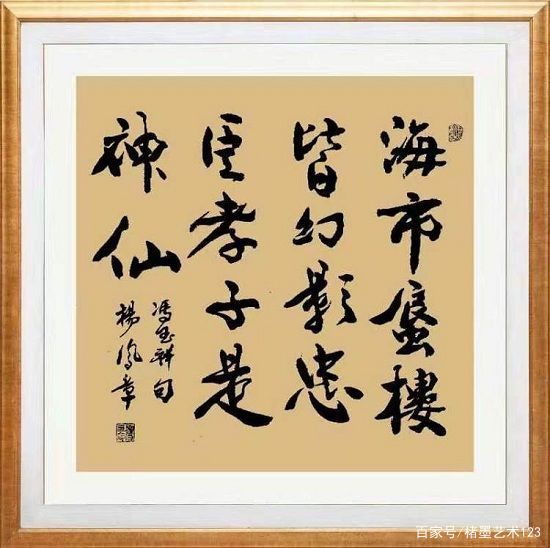 海市蜃樓
皆幻影忠
臣孝子是
神仙
馮玉祥句
楊鳳章
百家号/楮墨艺术123